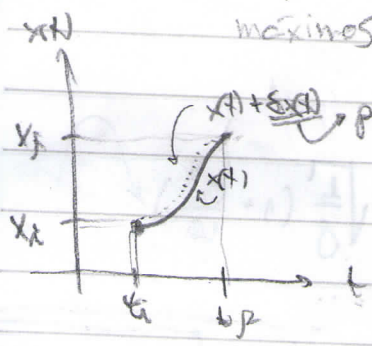 x(t) máximos
x(t) + δx(t) → p
x_f
x(t)
x_i
t
t_i t_f